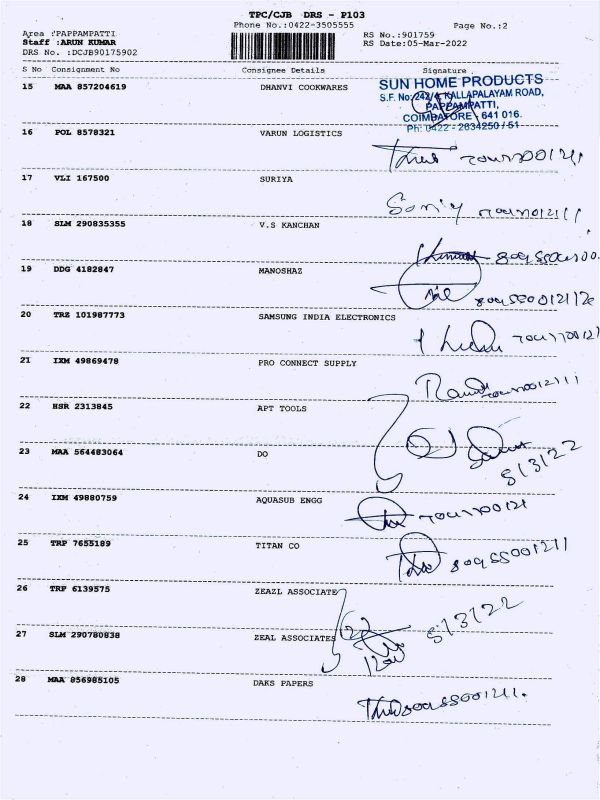 TPC/CJB DRS - P103
Phone No.:0422-3505555
Page No.:2
Area :PAPPAMPATTI
Staff :ARUN KUMAR
DRS No. :DCJB90175902
RS No.:901759
RS Date:05-Mar-2022
S No Consignment No Consignee Details Signature
15 MAA 857204619 DHANVI COOKWARES
SUN HOME PRODUCTS
S.F. No: 242/4 KALLAPALAYAM ROAD,
PAPPAMPATTI,
COIMBATORE - 641 016.
Ph: 0422 - 2634250 / 51
16 POL 8578321 VARUN LOGISTICS
17 VLI 167500 SURIYA
18 SLM 290835355 V.S KANCHAN
19 DDG 4182847 MANOSHAZ
20 TRZ 101987773 SAMSUNG INDIA ELECTRONICS
21 IXM 49869478 PRO CONNECT SUPPLY
22 HSR 2313845 APT TOOLS
23 MAA 564483064 DO
5/3/22
24 IXM 49880759 AQUASUB ENGG
25 TRP 7655189 TITAN CO
26 TRP 6139575 ZEAZL ASSOCIATE
27 SLM 290780838 ZEAL ASSOCIATES
5/3/22
28 MAA 856985105 DAKS PAPERS